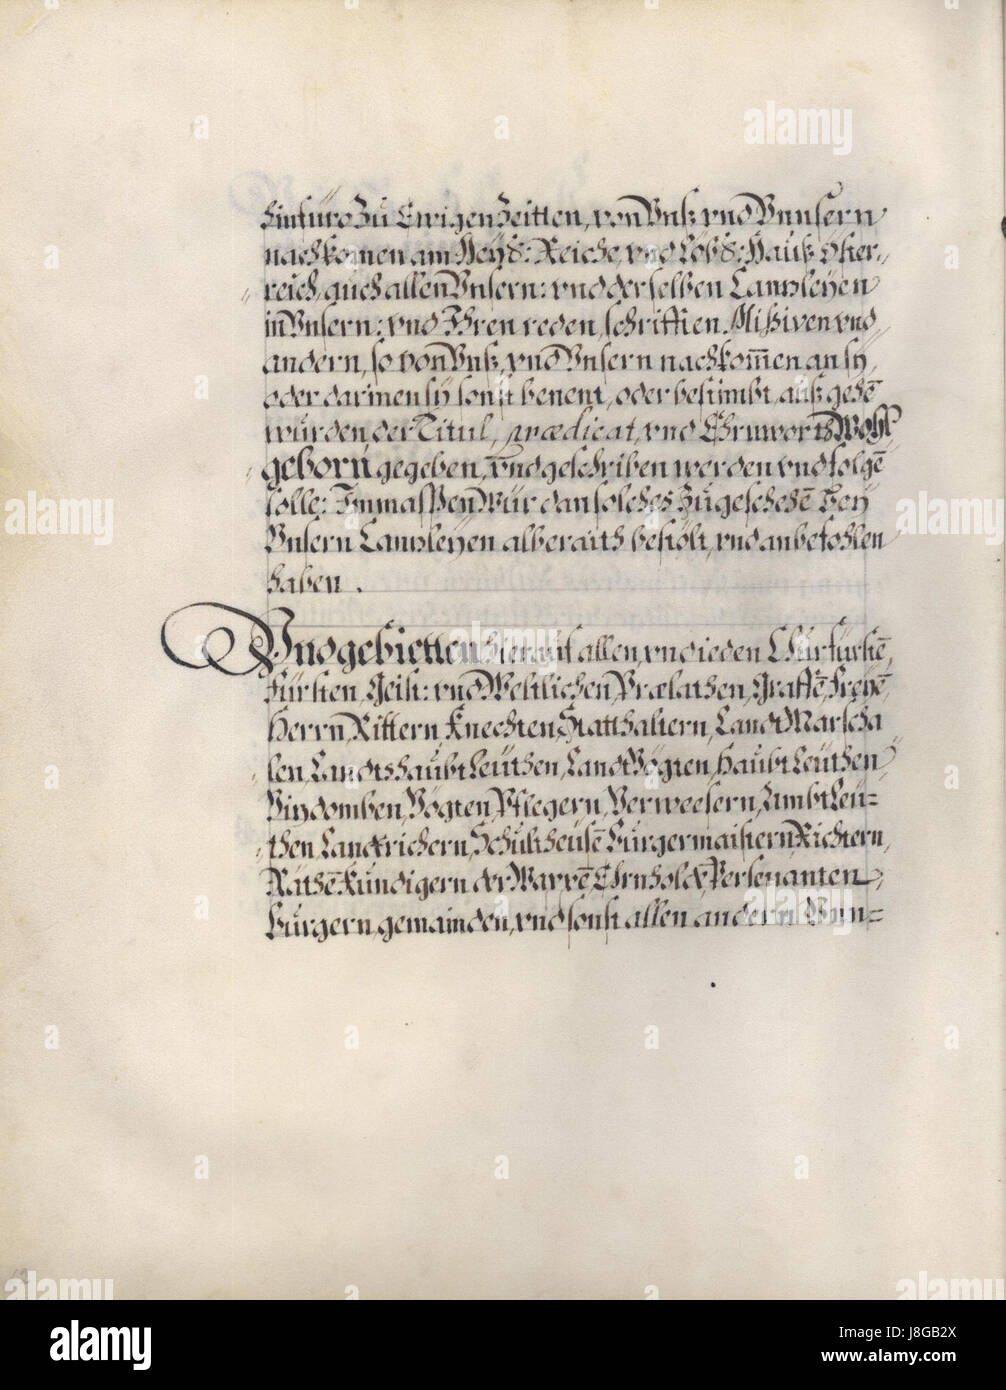 hinfüro Zu Ewigen Zeitten, von Unß vnd Vnnsern
nachkomen am Heÿ: Reiche, vnd Löb: Hauß Öster-
reich, auch allen Vnsern: vnd derselben Cannzleÿen
in Vnsern: vnd Ihren reden, schrifften Missiven vnd
andern, so von Vnß, vnd Vnsern nachkom̄en an sÿ,
oder darinnen sÿ sonst benent, oder bestimbt, auß gehē
würden, der Titul, prædicat, vnd Ehrnworts Wohl-
geborn gegeben, vnd geschriben werden vnd folgē
solle: Inmassen Wür dan solches Zu geschehē beÿ
Vnsern Cannzleÿen alberaith bestölt, vnd anbefohlen
haben.
Vnd gebietten hierauf allen, vnd ieden Churfürstē,
Fürsten, Geist: vnd Weltlichen, Prælathen, Graffē, Freÿē,
Herrn, Rittern, Knechten, Statthaltern, Landt Marscha
len, Landtshaubt Leüthen, Landt Vögten, Haubt Leüthen,
Vizdomben, Vögten, Pflegern, Verweesern, Ambt Leü=
then, Landtrichern, Schultheüsē, Bürgermaistern, Richtern,
Räthē, Kündigern der Wappē, Ehrnholdē, Persevanten,
Bürgern, gemainden, vnd sonst allen andern Vnn=
alamy
alamy
Image ID: J8GB2X
www.alamy.com